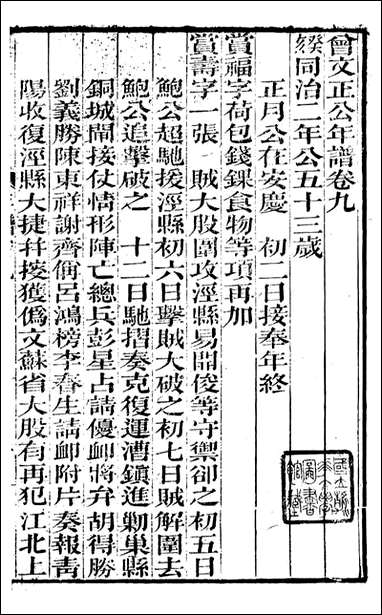 曾文正公年譜卷九
癸亥同治二年公五十三歲
正月公在安慶　初二日接奉年終
賞福字荷包錢錁食物等項再加
賞壽字一張　賊大股圍攻涇縣易開俊等守禦卻之初五日
鮑公超馳援涇縣初六日擊賊大破之初七日賊解圍去
鮑公追擊破之　十二日馳摺奏克復運漕鎮進勦巢縣
銅城閘接仗情形陣亡總兵彭星占請優卹將弁胡得勝
劉義勝陳東祥謝齊衡呂鴻榜李春生請卹附片奏報青
陽收復涇縣大捷幷接獲僞文蘇省大股有再犯江北上